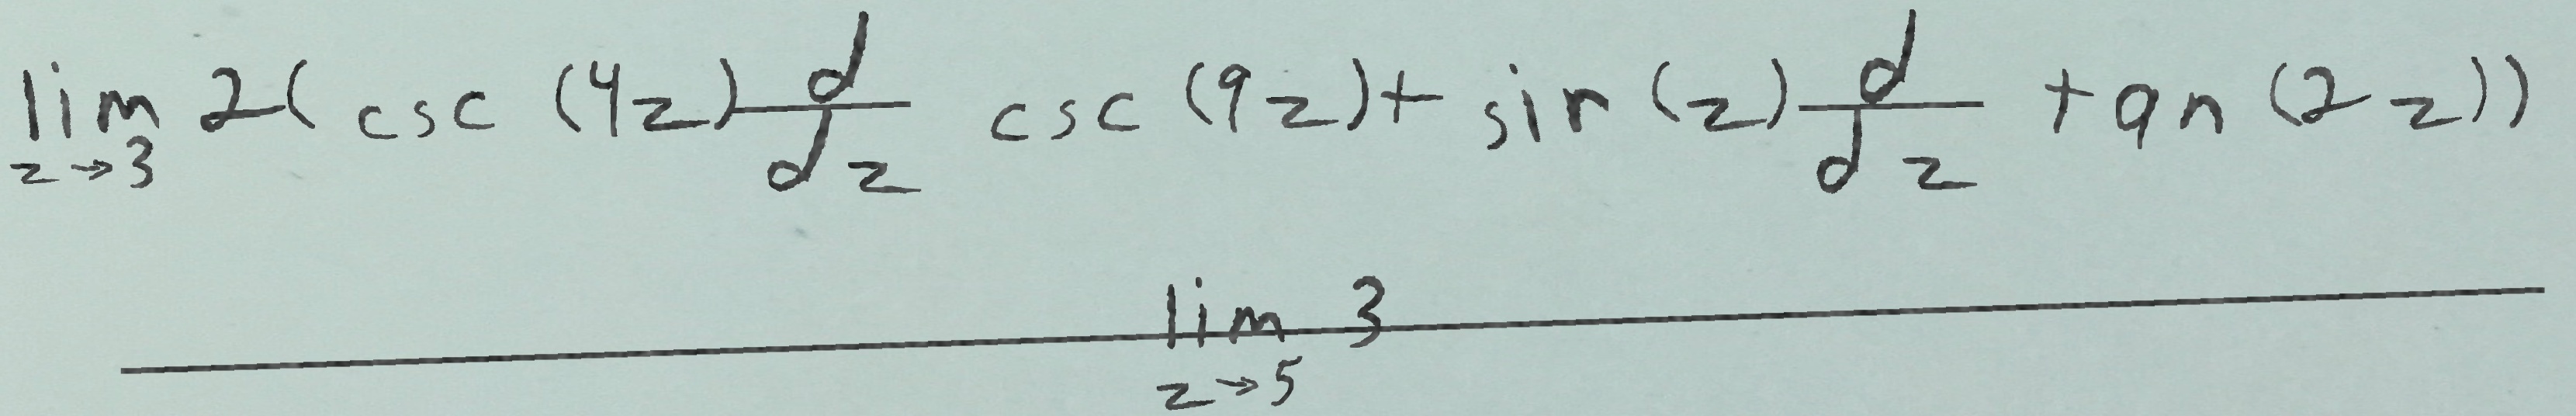 \frac{\lim_{z \to 3} 2(\csc(4z) \frac{d}{dz} \csc(9z) + \sin(z) \frac{d}{dz} \tan(2z))}{\lim_{z \to 5} 3}